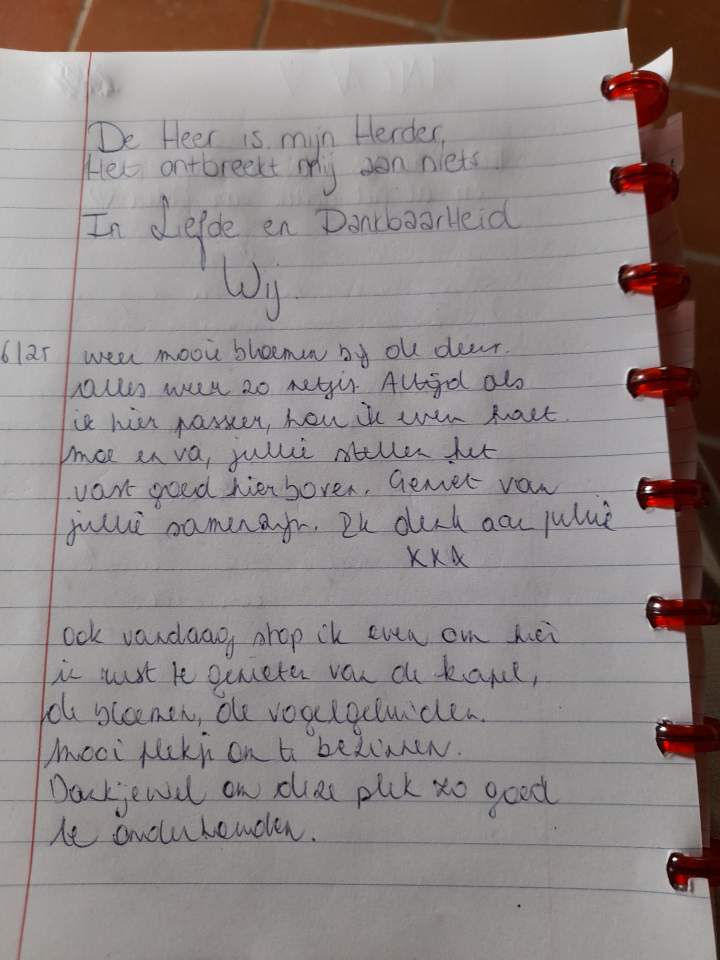 De Heer is mijn Herder,
Het ontbreekt mij aan niets.
In Liefde en Dankbaarheid
Wij.
6/25 weer mooie bloemen bij de deur.
Alles weer zo netjes. Altijd als
ik hier passeer, hou ik even halt.
moe en va, jullie stellen het
vast goed hierboven. Geniet van
jullie samenzijn. Ik denk aan jullie
xxx
ook vandaag stop ik even om hier
in rust te genieten van de kapel,
de bloemen, de vogelgeluiden.
Mooi plekje om te bezinnen.
Dankjewel om deze plek zo goed
te onderhouden.